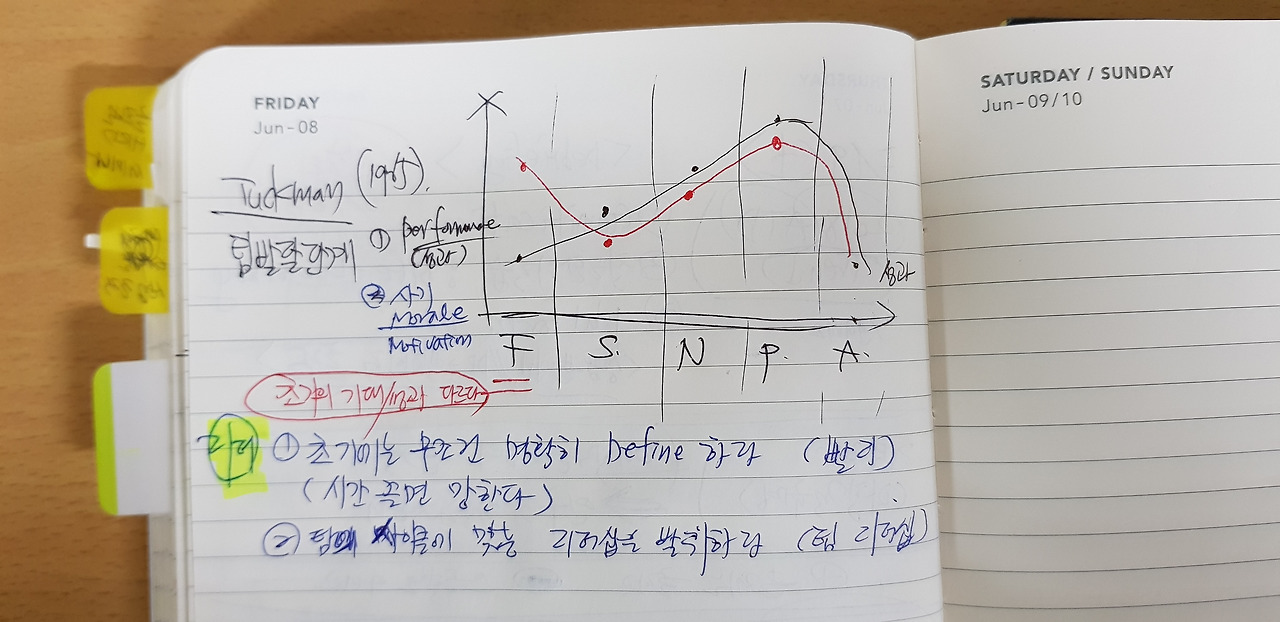 FRIDAY
Jun-08
SATURDAY / SUNDAY
Jun-09/10
Tuckman (1965).
팀발달단계
① performance
(성과)
② 사기
Morale
Motivation
성과
F S. N P. A.
초기의 기대/성과 다르다
리더 ① 초기에는 무조건 명확히 Define 하라 (빨리)
(시간 끌면 망한다)
② 팀 사이클에 맞는 리더십을 발휘하라 (팀 리더십)